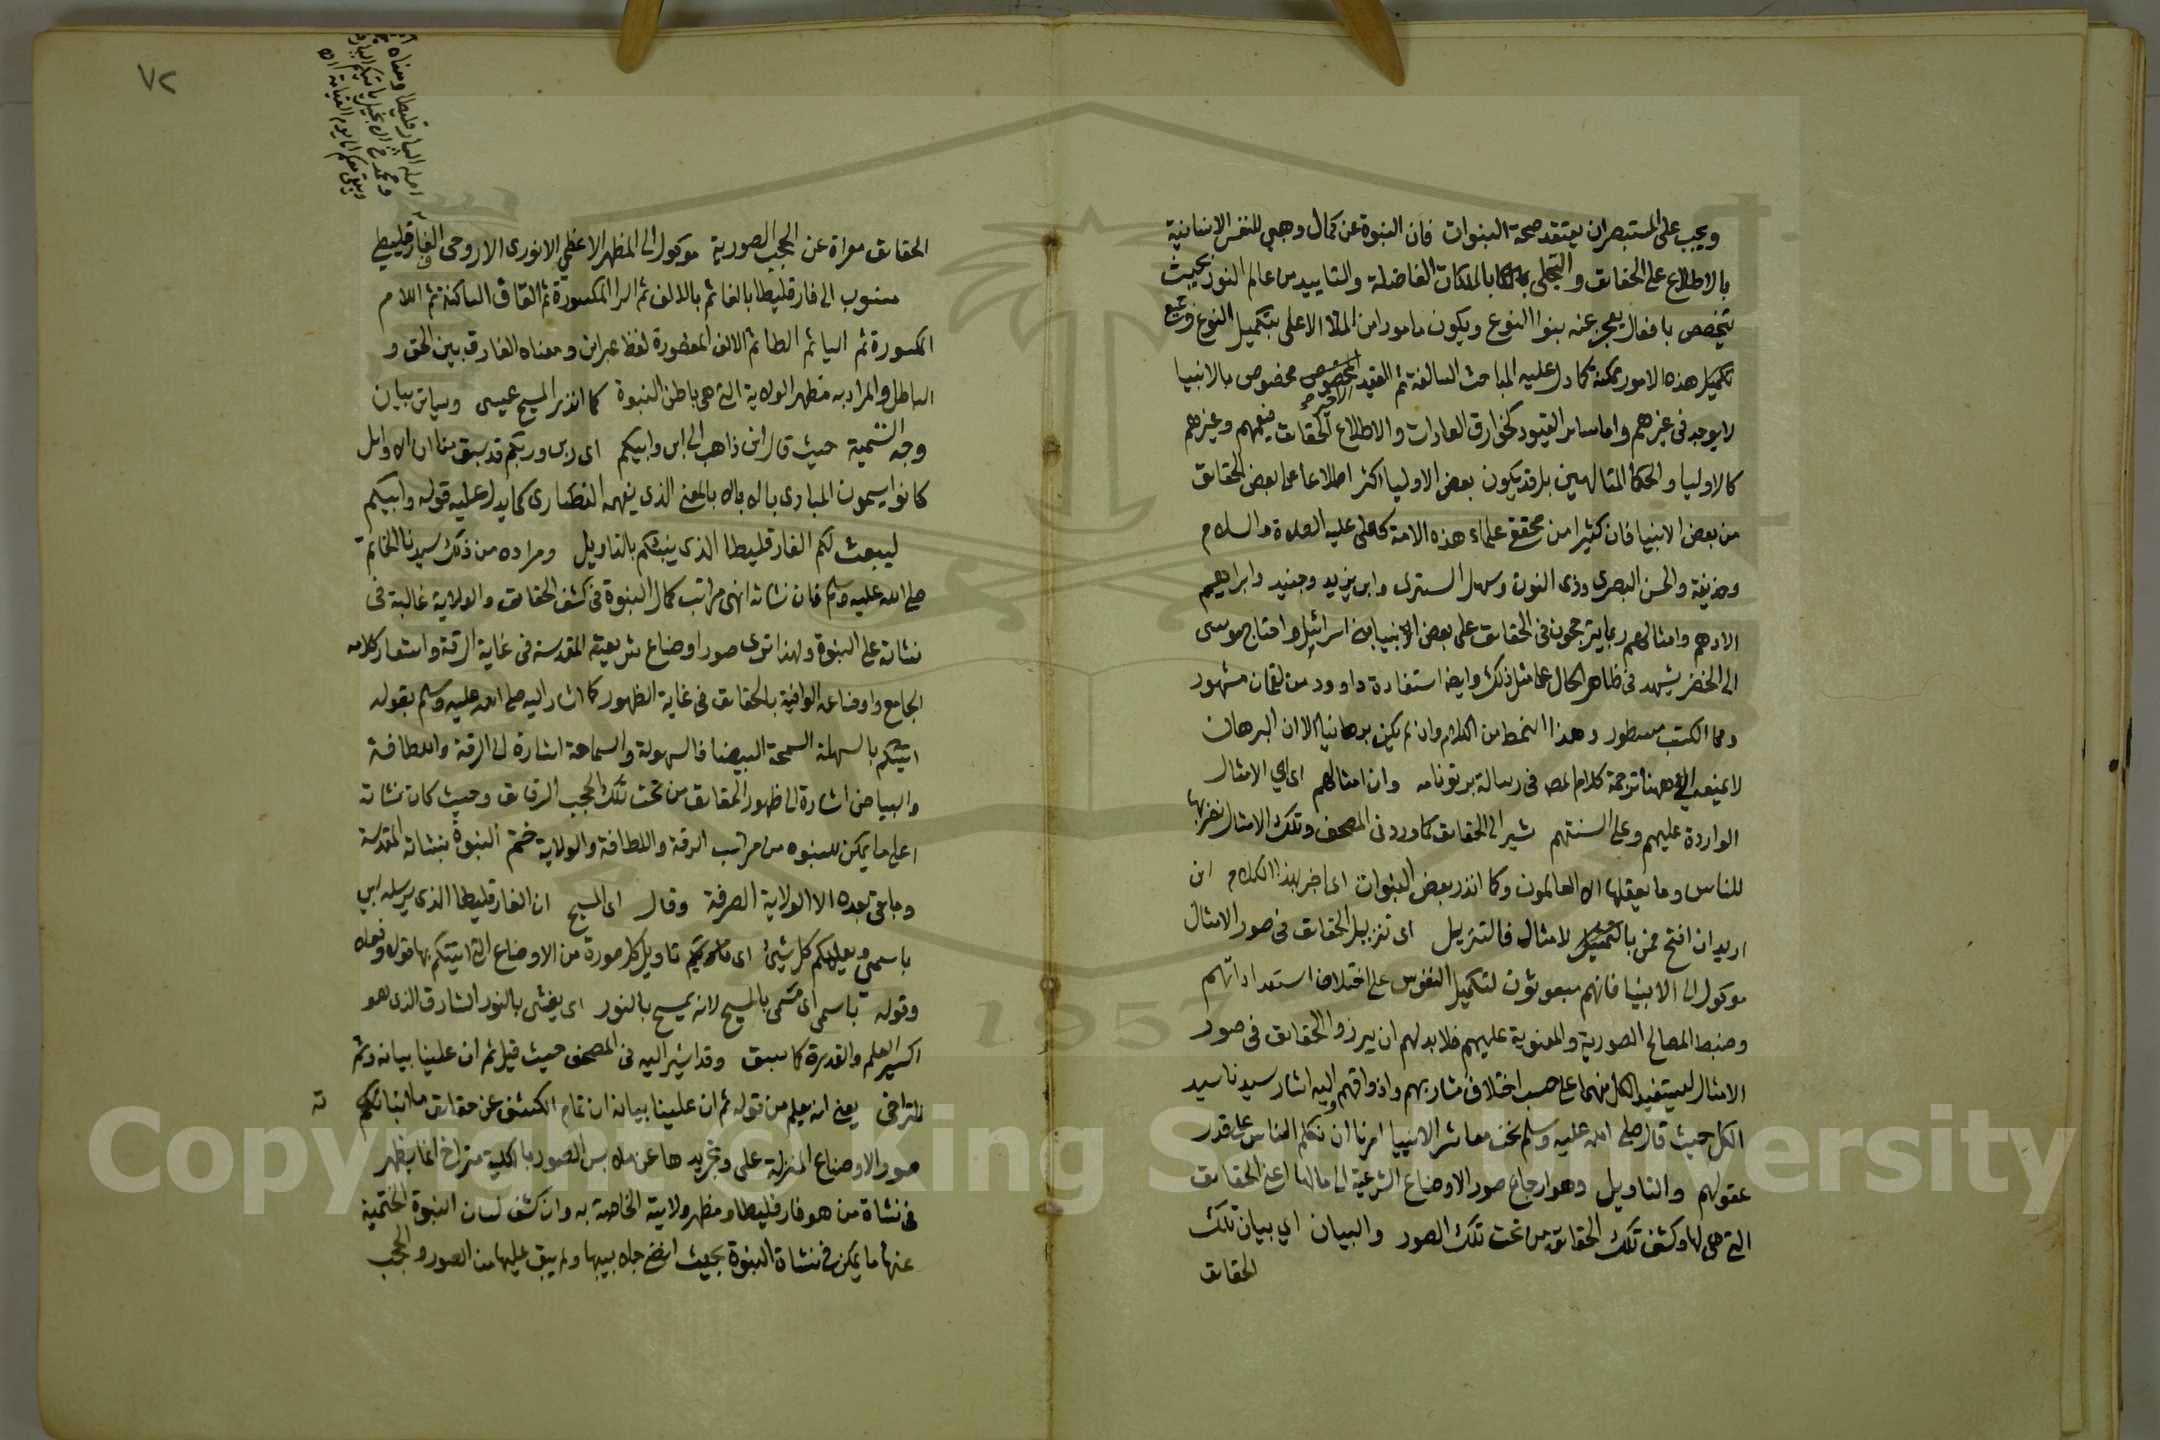 ويجب على المستبصر ان يعتقد صحة النبوات فان النبوة عن كمال وهبي للنفس الانسانية
بالاطلاع على الحقائق والتحلي بالملكات الفاضلة والتاييد من عالم النور بحيث
يتخصص بافعال يعجز عنه بنوا النوع ويكون مامورا من الملا الاعلى بتكميل النوع
تكميل هذه الامور ممكنة كما دل عليه المباحث السالفة ثم القيد الاخير مخصوص بالانبيا
لا يوجد في غيرهم واما سائر القيود كخوارق العادات والاطلاع الحقائق فيعمهم وغيرهم
كالاوليا والحكما المتالهين بل قد يكون بعض الاوليا اكثر اطلاعا على بعض الحقائق
من بعض الانبيا فان كثيرا من محققي علماء هذه الامة كعلى عليه الصلاة والسلام
وحذيفة والحسن البصرى وذى النون وسهل التسترى وابى يزيد وجنيد وابراهيم
الادهم وامثالهم ربما يترجحون في الحقائق على بعض الانبيا بنى اسرائيل واحتاج موسى
الى الخضر يشهد في ظاهر الحال على مثل ذلك وايضا استفادة داوود من لقمان مشهور
وفي الكتب مسطور وهذا النمط من الكلام وان لم يكن برهانيا الا ان البرهان
لا يمنعه الي ههنا ترجمة كلام المص في رسالة برتونامه وان امثالهم اي الامثال
الواردة عليهم وعلى السنتهم تشير الى الحقائق كما ورد في المصحف وتلك الامثال نضربها
للناس وما يعقلها الا العالمون وكما انذر بعض النبوات اي اخبر بهذا الكلام انى
اريد ان افتح فمى بالامثال فالتنزيل اي تنزيل الحقائق في صور الامثال
موكول الى الانبيا فانهم مبعوثون لتكميل النفوس على اختلاف استعداداتهم
وضبط المصالح الصورية والمعنوية عليهم فلا بد لهم ان يبرزوا الحقائق في صور
الامثال ليستفيد الكل منهما على حسب اختلاف مشاربهم واذواقهم واليه اشار سيدنا سيد
الكل حيث قال صلى الله عليه وسلم نحن معاشر الانبيا امرنا ان نكلم الناس على قدر
عقولهم والتاويل وهو ارجاع صور الاوضاع الشرعية الى مالها اعنى الحقائق
التى هى لها وكشف تلك الحقائق من تحت تلك الصور والبيان اي بيان تلك
الحقائق
٧٢
اصله البارقليطا ومعناه
الحقائق معراة عن الحجب الصورية موكول الى المظهر الاعظمي الانورى الاروحى الفارقليطي
منسوب الى فارقليطا بالفا ثم بالالف ثم الرا المكسورة ثم القاف الساكنة ثم اللام
المكسورة ثم اليا ثم الطا ثم الالف المقصورة لفظ عبرانى ومعناه الفارق بين الحق و
الباطل والمراد به مظهر الولاية التى هى باطن النبوة كما انذر المسيح عيسى وسياتى بيان
وجه التسمية حيث قال انى ذاهب الى ابى وابيكم اى ربى وربكم قد سبق منا ان الاوايل
كانوا يسمون المبادى بالاباء لا بالمعنى الذى يفهمه النصارى كما يدل عليه قوله وابيكم
ليبعث لكم الفارقليطا الذى ينبئكم بالتاويل ومراده من ذلك سيدنا الخاتم
صلى الله عليه وسلم فان نشاته انهى مراتب كمال النبوة في كشف الحقائق والولاية غالبة في
نشاته على النبوة ولهذا ترى صور اوضاع شريعته المقدسة في غاية الرقة واشعار كلامه
الجامع واوضاعه الوافية بالحقائق في غاية الظهور كما اشار اليه صلى الله عليه وسلم بقوله
اتيتكم بالسهلة السمحة البيضا فالسهولة والسماحة اشارة الى الرقة واللطافة
والبياض اشارة الى ظهور الحقائق من تحت تلك الحجب الرقائق وحيث كان نشاته
اعلى ما يمكن للنبوة من مراتب الرقة واللطافة والولاية ختم النبوة بنشاته المقدسة
وما بقى بعده الا الولاية الصرفة وقال اى المسيح ان الفارقليطا الذى يرسله ابي
باسمى ويعلمكم كل شيئ اى تاويل كل صورة من الاوضاع التى اتيتكم بها قوله وفعله
وقوله باسمى اى مسمى بالمسيح لانه يمسح بالنور اى يغشى بالنور الشارق الذى هو
اكسير العلم والقدرة كما سبق وقد اشير اليه في المصحف حيث قيل ثم ان علينا بيانه وثم
للتراخى يعنى انه يعلم من قوله ثم ان علينا بيانه ان تمام الكشف عن حقائق
صور الاوضاع المنزلة على وتجريدها عن ملابس الصور بالكلية متراخ انما يظهر
في نشاة من هو فارقليطا ومظهر ولايته الخاصة به وان كشف لسان النبوة الختمية
عنها ما يمكن في نشاة النبوة بحيث اتضح جلابيبها ولم يبق عليها من الصور والحجب